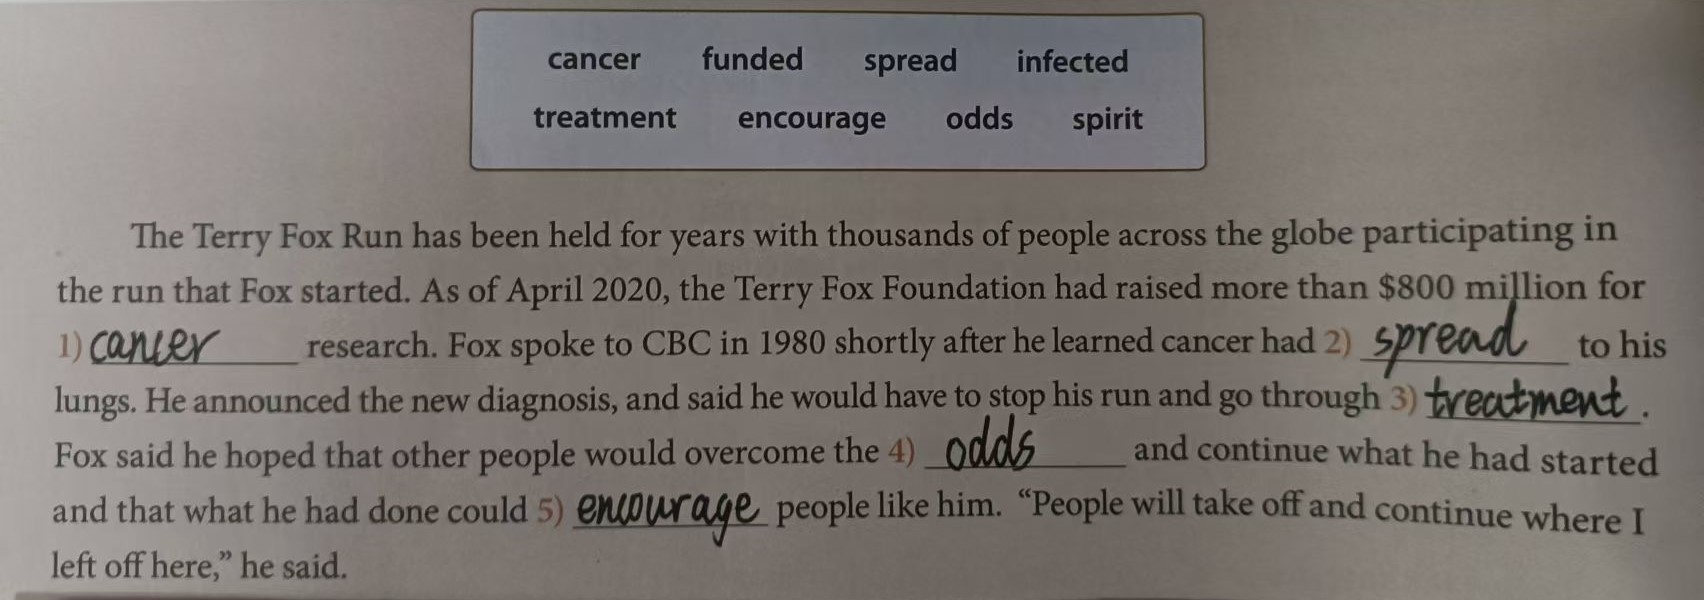 cancer funded spread infected
treatment encourage odds spirit
The Terry Fox Run has been held for years with thousands of people across the globe participating in
the run that Fox started. As of April 2020, the Terry Fox Foundation had raised more than $800 million for
1) cancer research. Fox spoke to CBC in 1980 shortly after he learned cancer had 2) spread to his
lungs. He announced the new diagnosis, and said he would have to stop his run and go through 3) treatment.
Fox said he hoped that other people would overcome the 4) odds and continue what he had started
and that what he had done could 5) encourage people like him. “People will take off and continue where I
left off here,” he said.